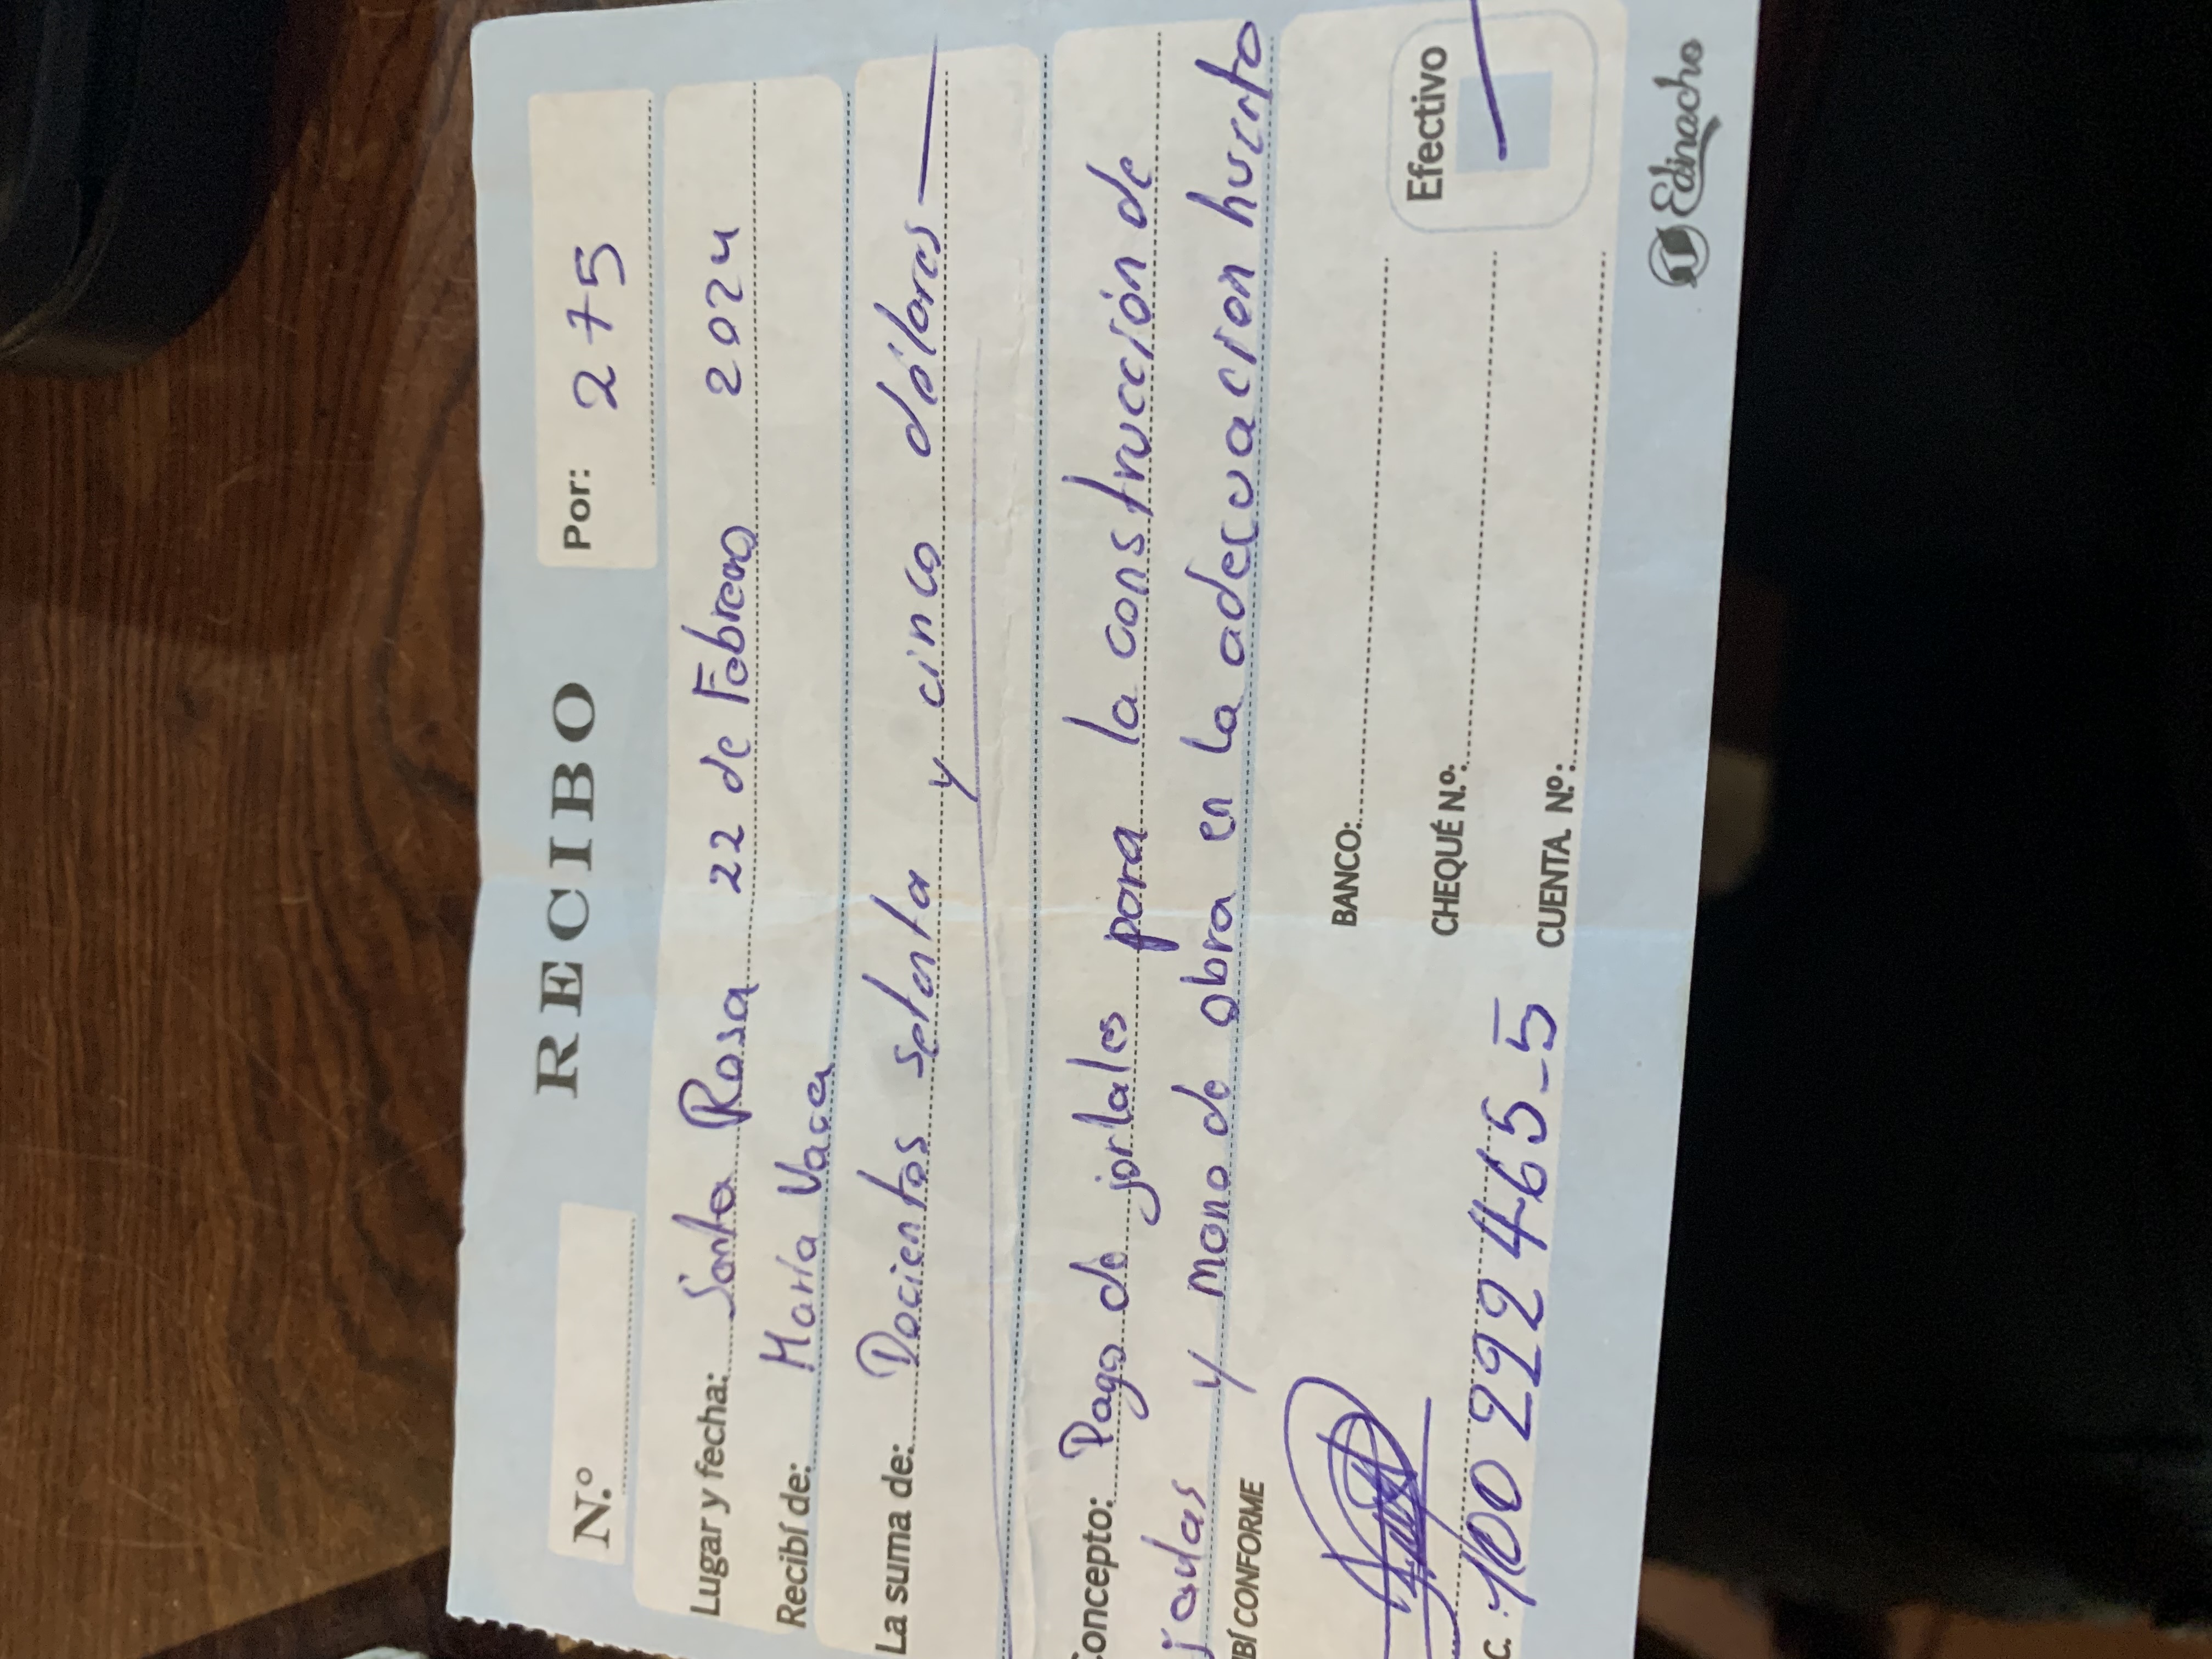 RECIBO
N.º
Por: 275
Lugar y fecha: Santa Rosa 22 de Febrero 2024
Recibí de: María Vaca
La suma de: Docientos setenta y cinco dólares
Concepto: Pago de jortales para la construcción de
jaulas y mano de obra en la adecuacion huerto
BÍ CONFORME
BANCO:
CHEQUÉ N.º.
CUENTA N.º:
C. 100 222465-5
Efectivo
Edinacho